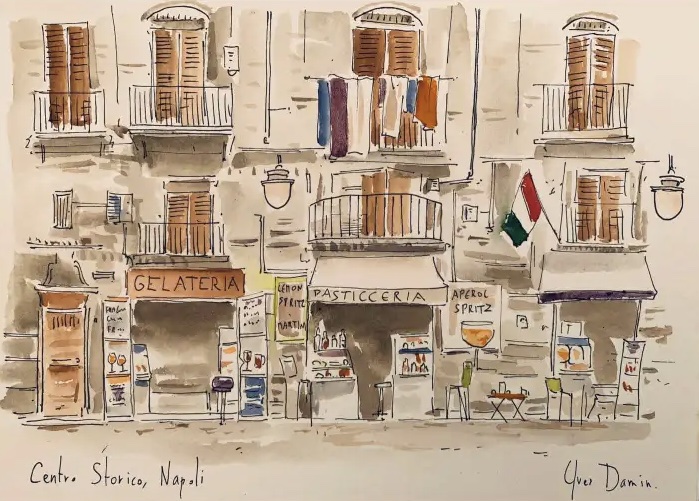 GELATERIA
LEMON
SPRITZ
MARTINI
PASTICCERIA
APEROL
SPRITZ
Centro Storico, Napoli
Yves Damin.